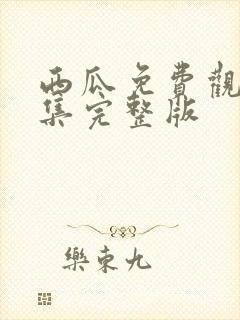 西瓜免費觀
集完整版
樂東九